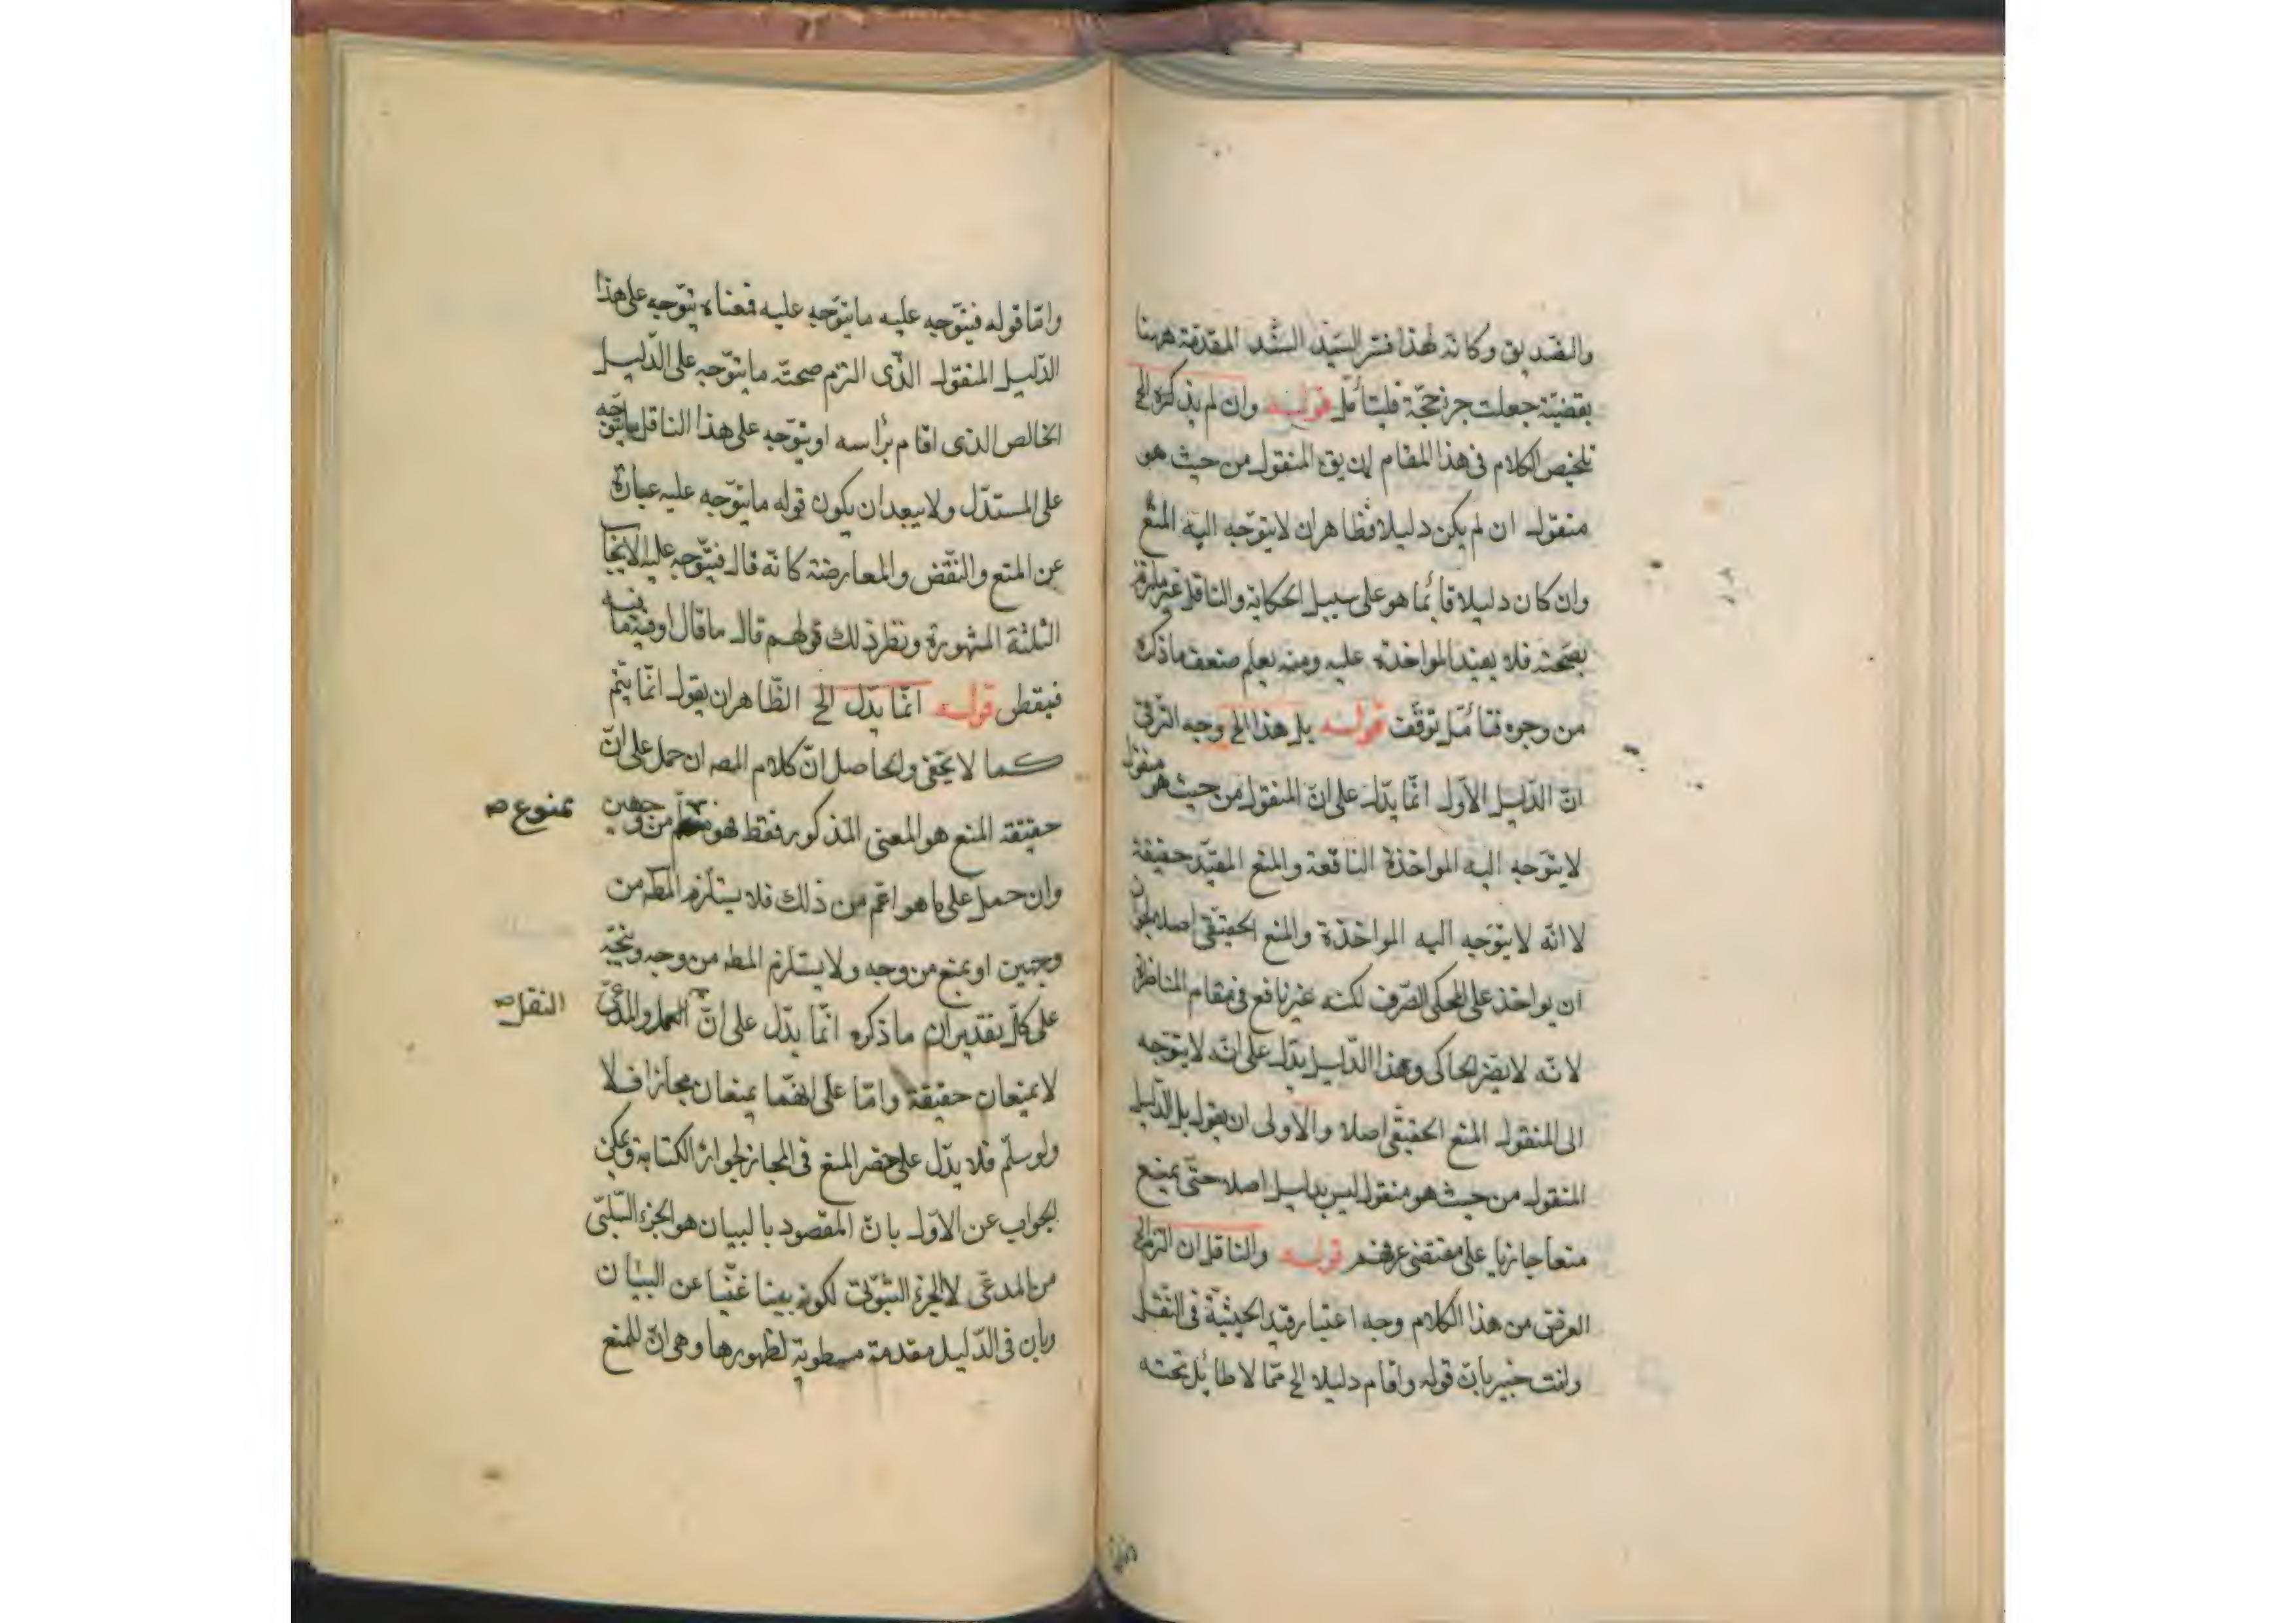 والتصديق وكانه لهذا فسّر السيّد السّند المقدّمة ههنا
بقضيّة جعلت جزء حجّة فليتأمّل قوله وان لم يذكره الخ
تلخيص الكلام فى هذا المقام ان يق المنقول من حيث هو
منقول ان لم يكن دليلا فظاهر ان لا يتوّجه اليه المنع
وان كان دليلا قائما هو على سبيل الحكاية والناقل غير ملتزم
بصحّته فلا يفيد المواخذة عليه ومنه يعلم ضعف ما ذكره
من وجوه فتأمّل توقّفت قوله بل هذا الخ وجه الترقى
انّ الدّليل الاوّل انّما يدّل على انّ المنقول من حيث هو منقول
لا يتوّجه اليه المواخذة النافعة والمنع المفيّد حقيقة
لا انّه لا يتوّجه اليه المواخذة والمنع الحقيقى اصلا لجواز
ان يواخذ على المحكى الصّرف لكنه غير نافع فى مقام المناظرة
لانّه لا يضر الحاكى وهذا الدّليل يدّل على انّه لا يتوّجه
الى المنقول المنع الحقيقى اصلا والاولى ان يقول بل الدّليل
المنقول من حيث هو منقول ليس بدليل اصلا حتّى يمنع
منعا جازيا على مقتضى عرفهم قوله والناقل ان التزم الخ
الغرض من هذا الكلام وجه اعتبار قيد الحيثيّة فى النّقل
وانت خبير بانّ قوله واقام دليلا الخ ممّا لا طائل تحته
وامّا قوله فيتوّجه عليه ما يتوّجه عليه فمعناه يتوّجه على هذا
الدّليل المنقول الذّى التزم صحتّه ما يتوّجه على الدّليل
الخالص الذى اقام برأسه او يتوّجه على هذا الناقل ما يتوّجه
على المستدّل ولا يبعد ان يكون قوله ما يتوّجه عليه عبارة
عن المنع والنّقض والمعارضة كانّه قال فيتّوجه عليه الابحاث
الثلثة المشهورة ونظير ذلك قولهم قال ما قال او فيه ما فيه
فيقطى قوله انّما يدّل الخ الظّاهر ان يقول انّما يتّم
كما لا يخفى والحاصل انّ كلام المصه ان حمل على انّ
حقيقة المنع هو المعنى المذكور فقط فهو من وجهين
ممنوع صه
وان حمل على ما هو اعّم من ذلك فلا يستلزم المطه من
وجهين او يمنع من وجه ولا يستلزم المطه من وجه ويتجّه
على كلّ تقدير ان ما ذكره انّما يدّل على انّ والمدّعى
النقل صه
لا يمنعان حقيقة وامّا على انّهما يمنعان مجازا فلا
ولو سلّم فلا يدّل على حصر المنع فى المجاز لجواز الكناية ويمكن
الجواب عن الاوّل بانّ المقصود بالبيان هو الجزء السّلبّى
من المدعّى لا الجزء الثبوتّى لكونه بيّنا غنيّا عن البيان
وبان فى الدّليل مقدمة مطوية لظهورها وهى انّ للمنع